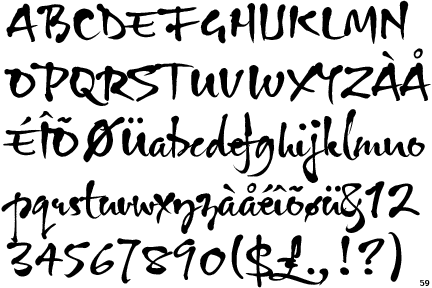 ABCDEFGHIJKLMN
OPQRSTUVWXYZÀÅ
ÉÎÕØÜabcdefghijklmno
pqrstuvwxyzàåéîõøü&12
34567890($£.,!?)
59